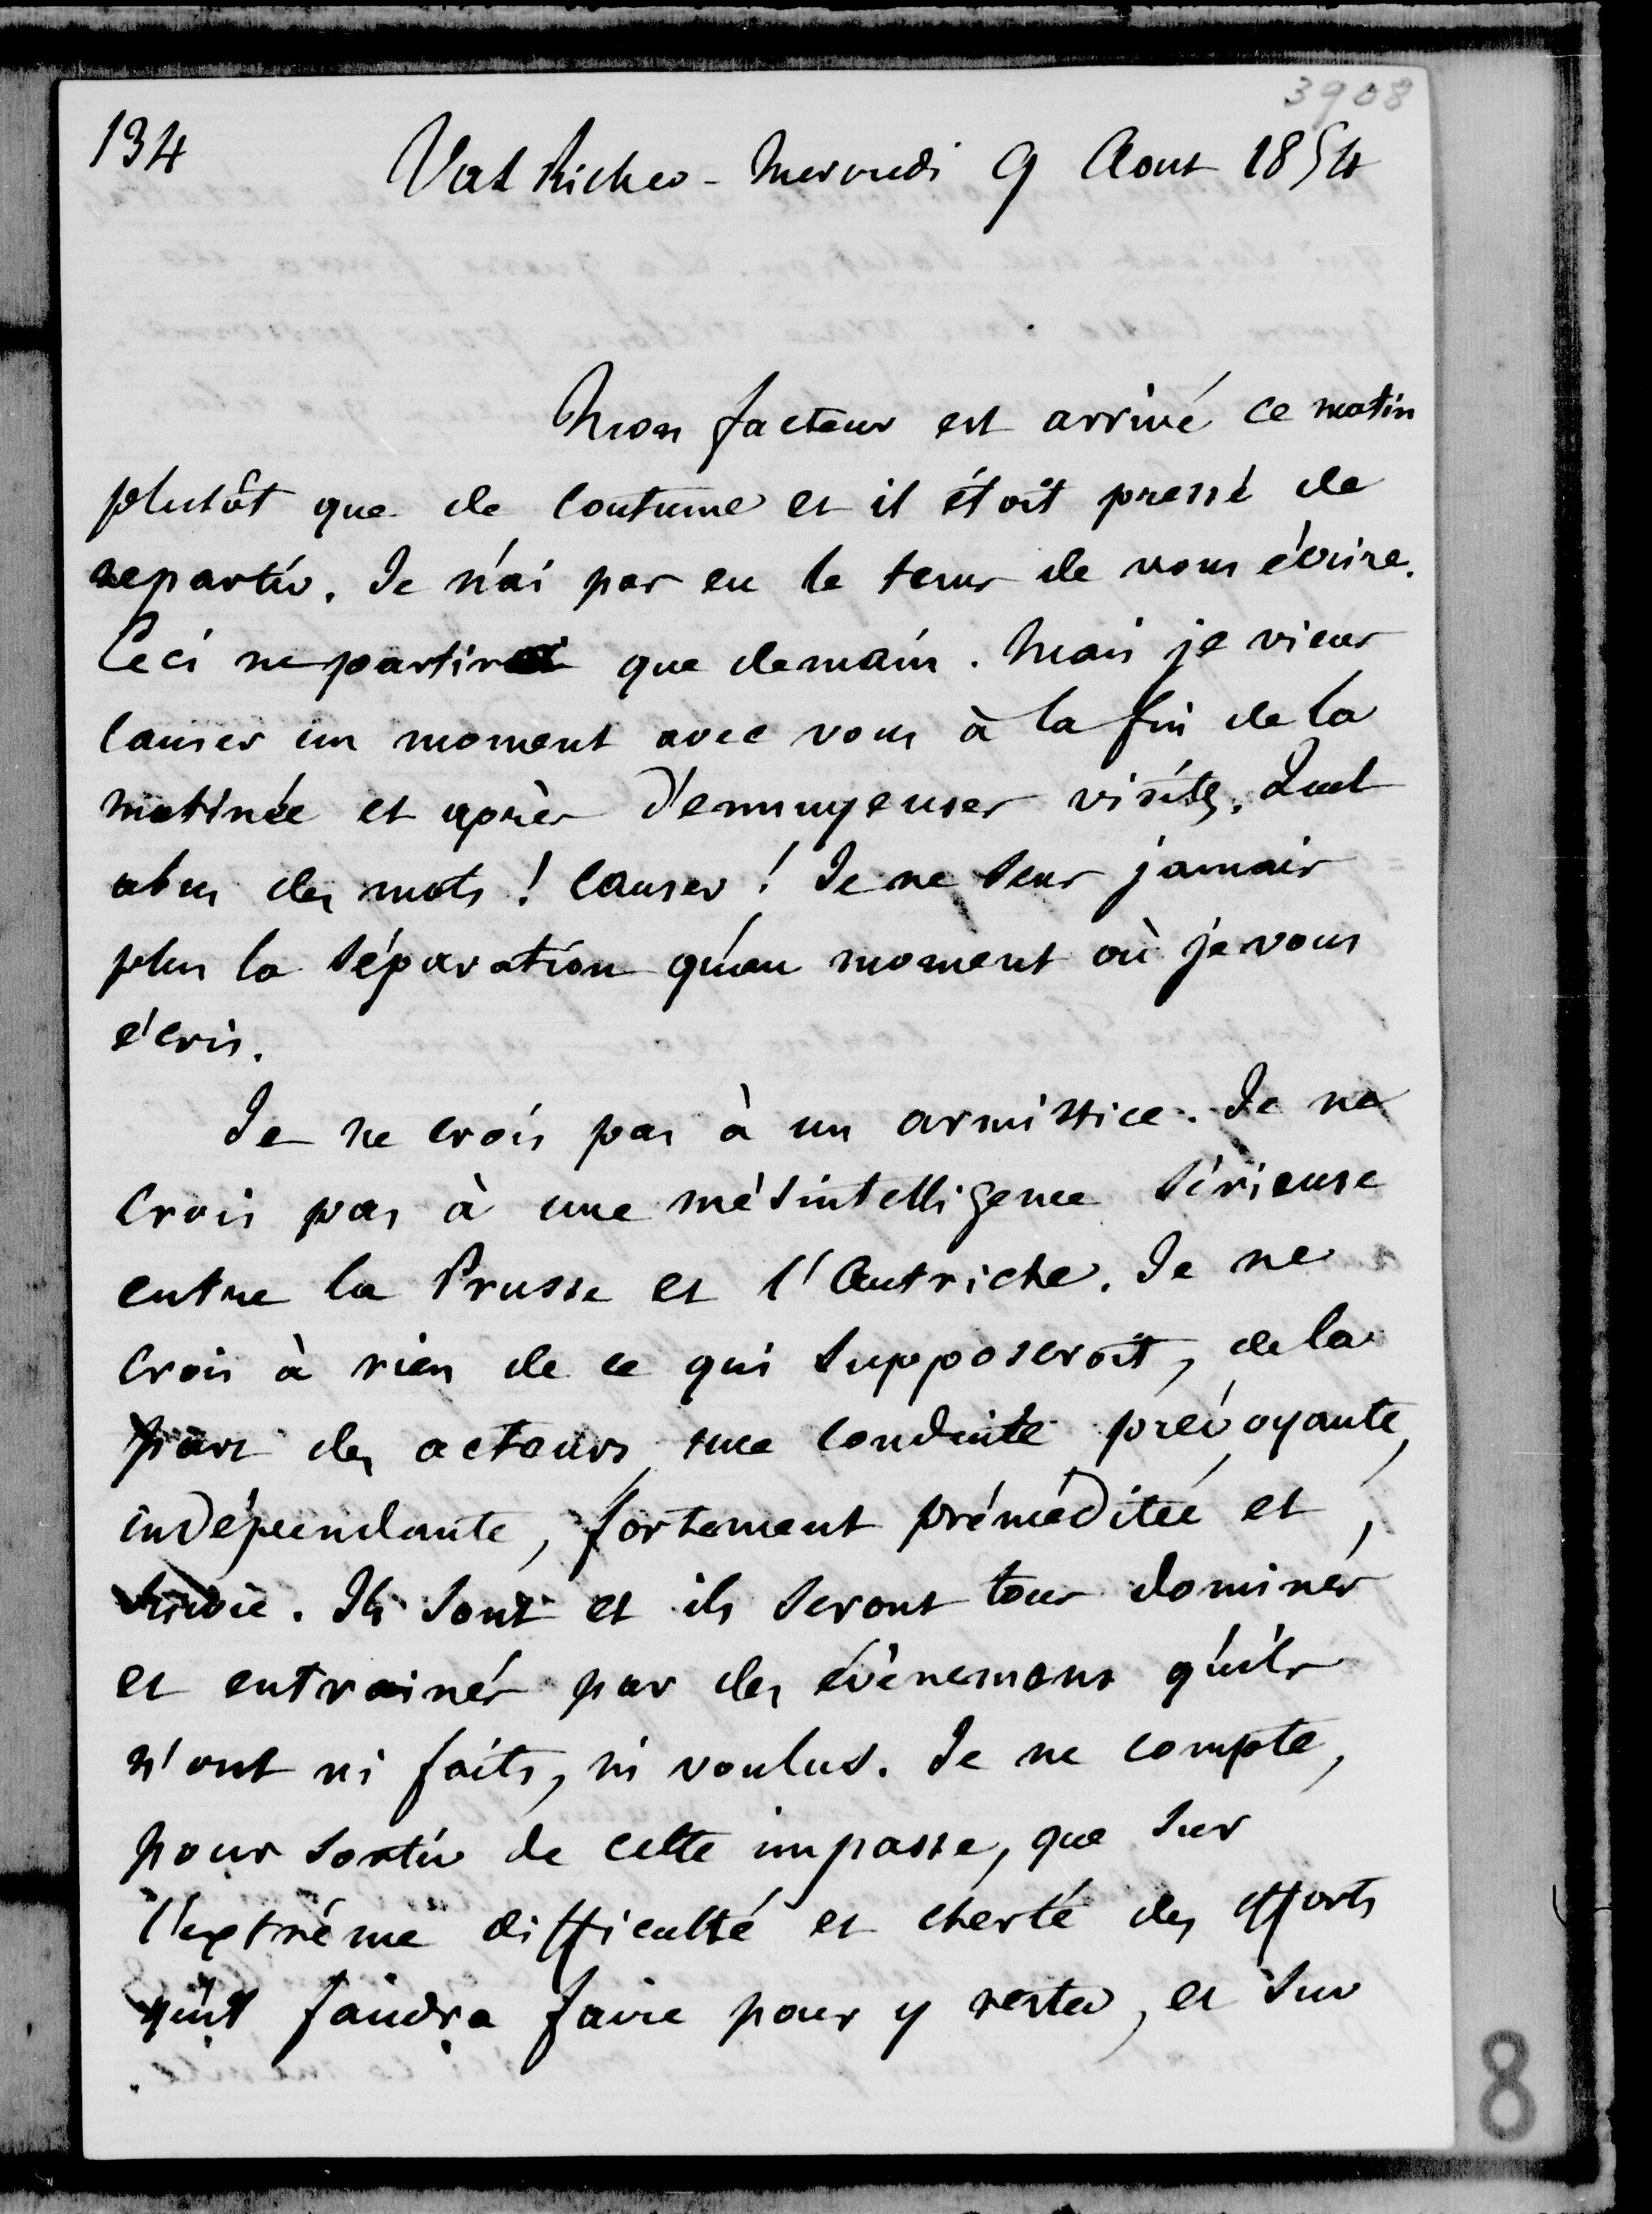 3908
134
Val Richer - Mercredi 9 Aout 1854
Mon facteur est arrivé ce matin
plutôt que de coutume et il étoit pressé de
repartir. Je n'ai pas eu le tems de vous écrire.
Ceci ne partira que demain. Mais je viens
causer un moment avec vous à la fin de la
matinée et après d'ennuyeuses visites. Quel
abus des mots ! Causer ! Je ne sens jamais
plus la séparation qu'au moment où je vous
écris.
Je ne crois pas à un armistice. Je ne
crois pas à une mésintelligence sérieuse
entre la Prusse et l'Autriche. Je ne
crois à rien de ce qui supposeroit, de la
part des acteurs, une conduite prévoyante,
indépendante, fortement préméditée et
suivie. Ils sont et ils seront tous dominés
et entrainés par des évènemens qu'ils
n'ont ni faits, ni voulus. Je ne compte,
pour sortir de cette impasse, que sur
l'extrême difficulté et cherté des efforts
qu'il faudra faire pour y rester, et sur
8